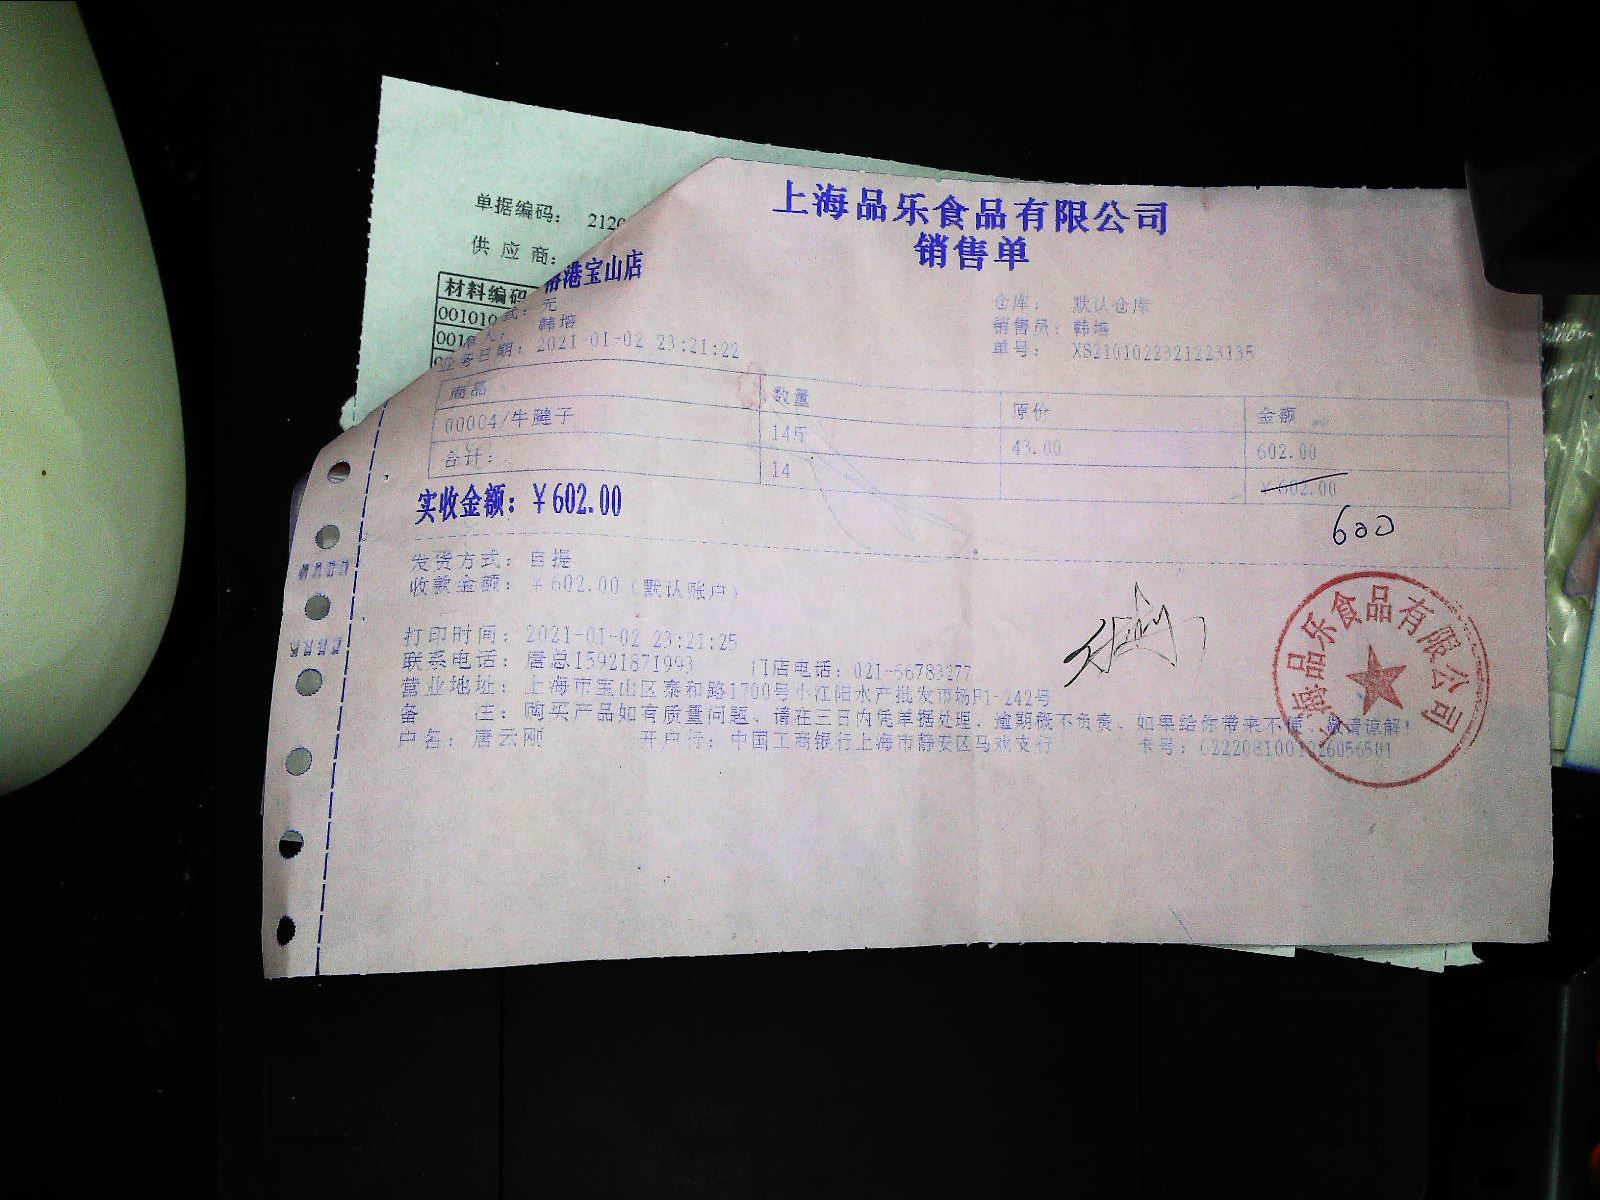 单据编码： 212
供 应 商：
材料编码
001010
001
上海品乐食品有限公司
销售单
港宝山店
式： 无
仓库： 默认仓库
人： 韩培
销售员： 韩培
业务日期： 2021-01-02 23:21:22
单号： XS2101022321223335
商品 数量 原价 金额
00004/牛腱子 14斤 43.00 602.00
合计： 14 ￥602.00
600
实收金额：￥602.00
发货方式： 自提
收款金额： ￥602.00（默认账户）
打印时间： 2021-01-02 23:21:25
联系电话： 唐总15921871993 门店电话：021-66783277
营业地址： 上海市宝山区泰和路1700号小江阳水产批发市场F1-242号
备 注： 购买产品如有质量问题、请在三日内凭单据处理、逾期概不负责、如果给你带来不便、敬请谅解！
户名： 唐云刚 开户行：中国工商银行上海市静安区马戏支行 卡号：
海品乐食品有限公司